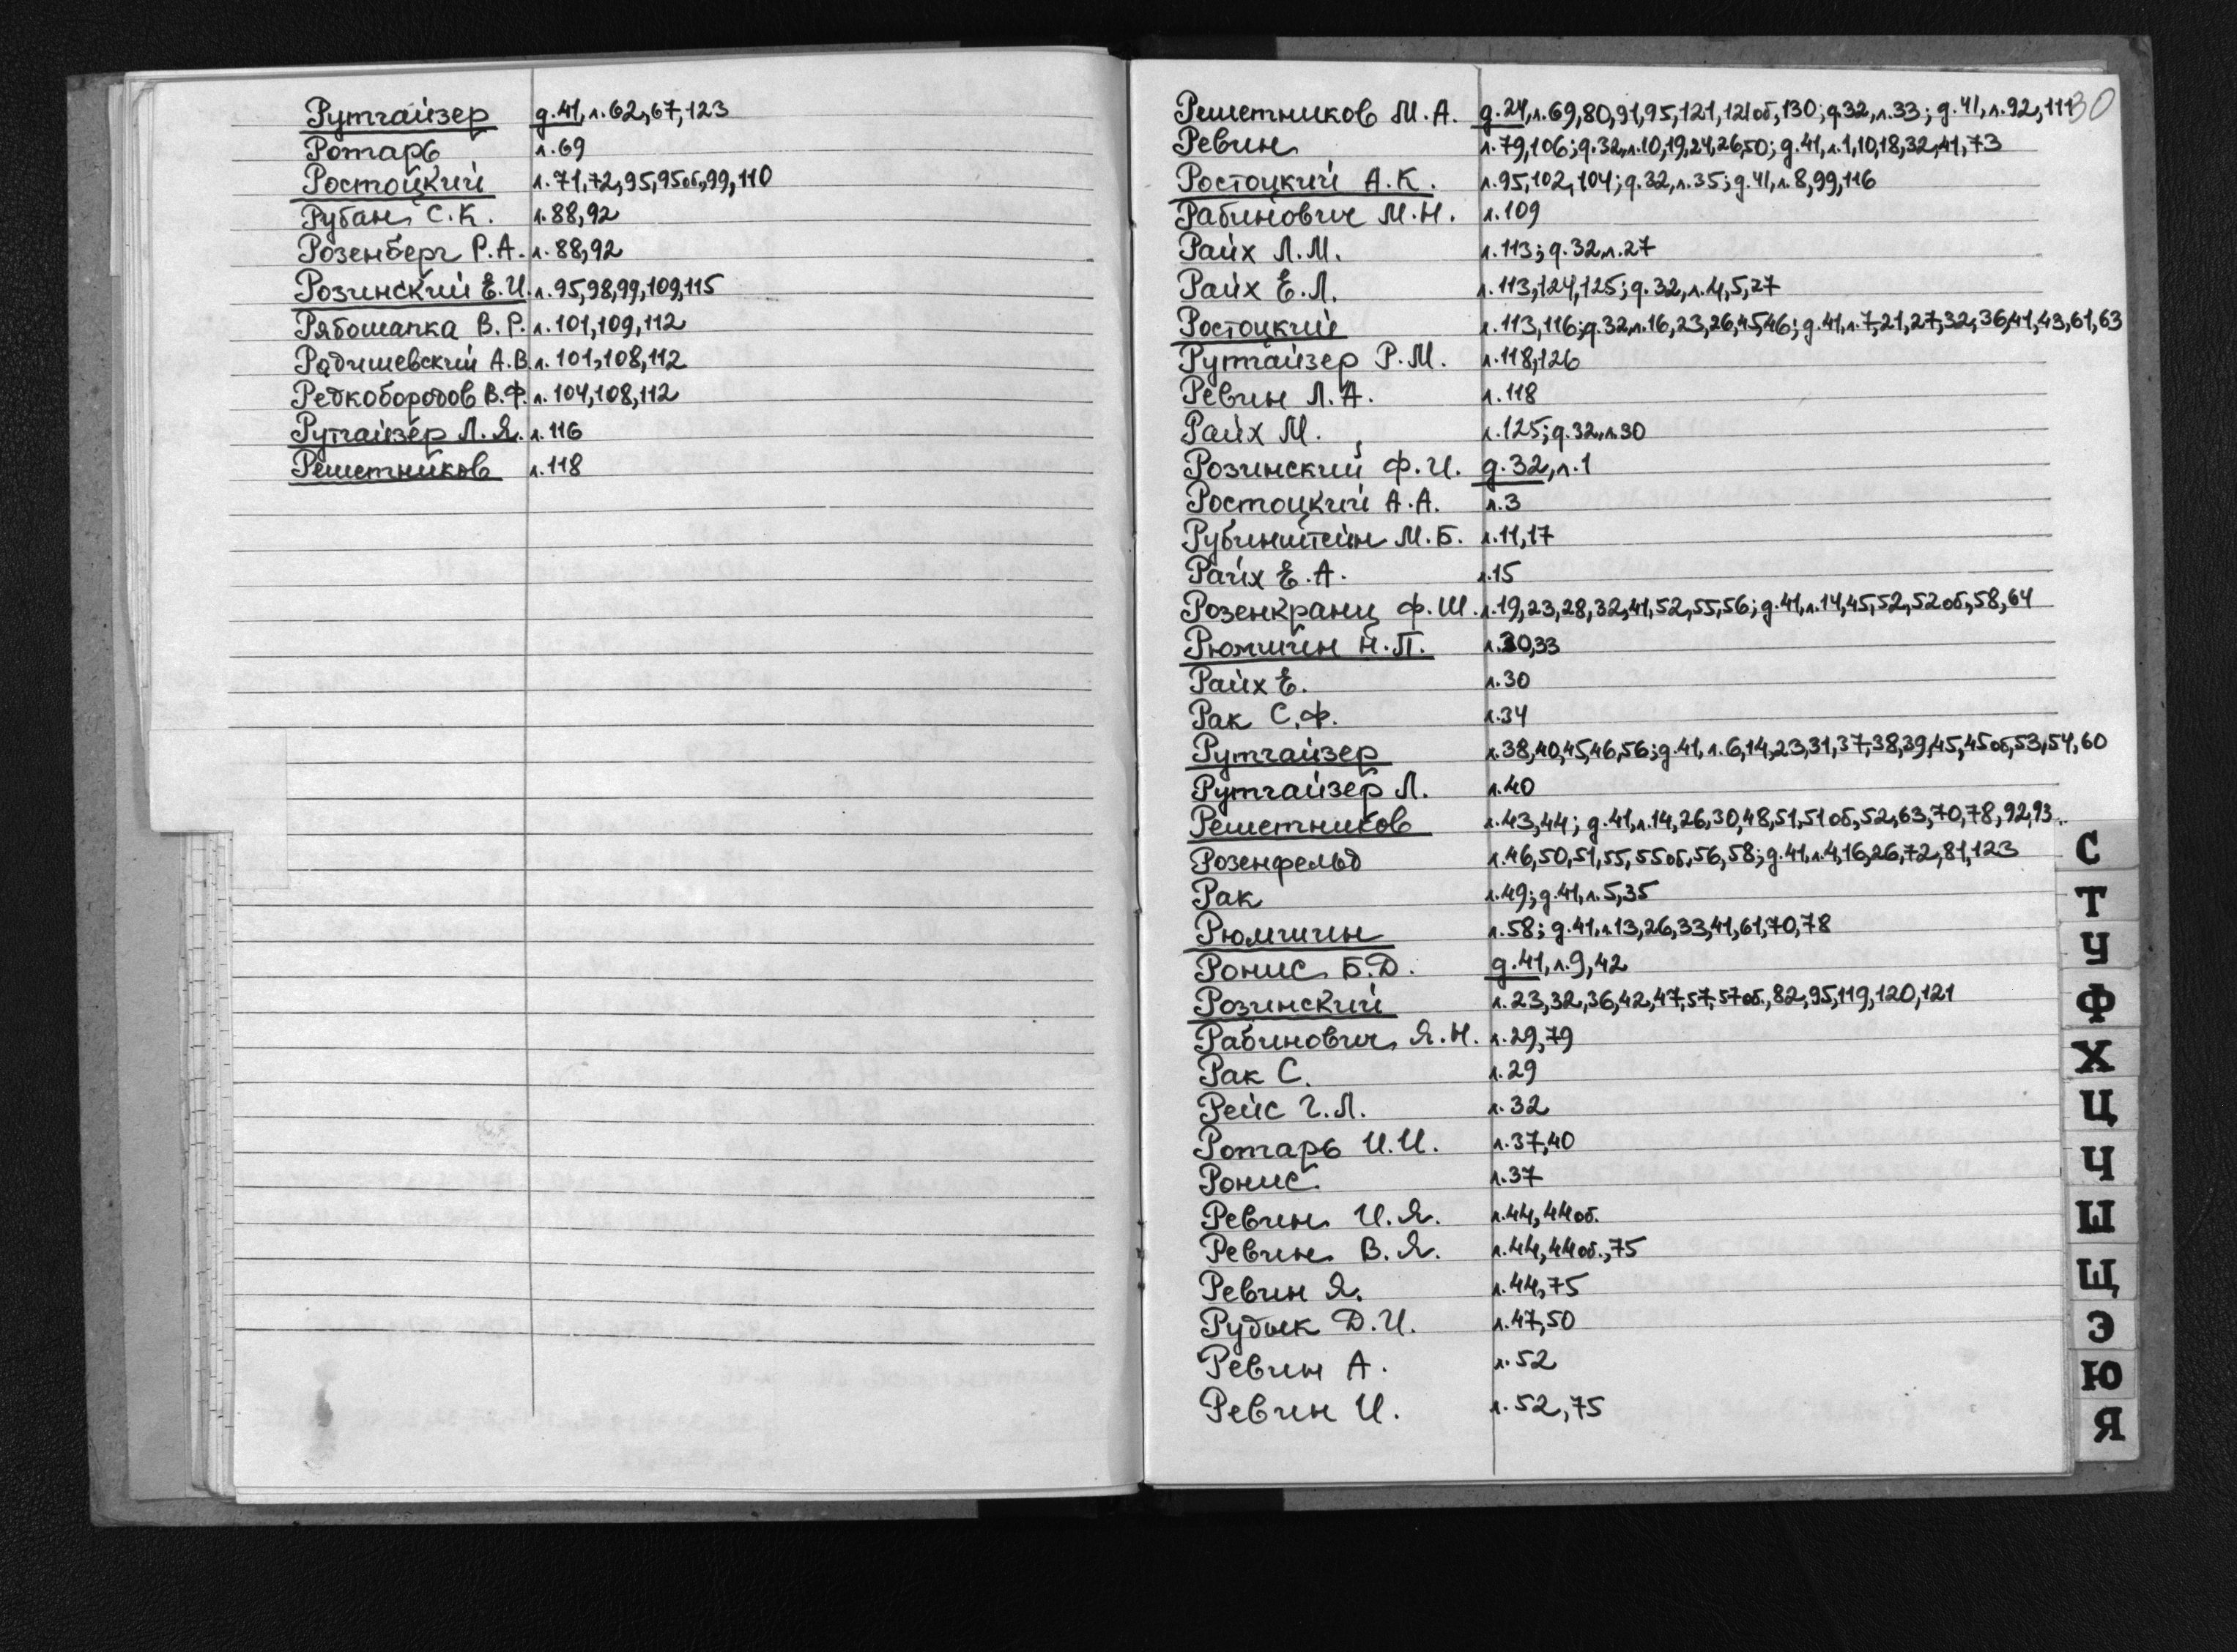 Рутгайзер д.41, л.62,67,123
Ротарь л.69
Ростоцкий л.71,72,95,95об,99,110
Рубан С.К. л.88,92
Розенберг Р.А. л.88,92
Розинский Е.И. л.95,98,99,109,115
Рябошапка В.Р. л.101,109,112
Радишевский А.В. л.101,108,112
Редкобородов В.Ф. л.104,108,112
Рутгайзер Л.Я. л.116
Решетников л.118
Решетников М.А. д.24, л.69,80,91,95,121,121об,130; д.32,л.33; д.41,л.92,111
30
Ревин л.79,106; д.32,л.10,19,24,26,50; д.41,л.1,10,18,32,41,73
Ростоцкий А.К. л.95,102,104; д.32,л.35; д.41,л.8,99,116
Рабинович М.Н. л.109
Райх Л.М. л.113; д.32,л.27
Райх Е.Л. л.113,124,125; д.32,л.4,5,27
Ростоцкий л.113,116; д.32,л.16,23,26,45,46; д.41,л.7,21,27,32,36,41,43,61,63
Рутгайзер Р.М. л.118,126
Ревин Л.А. л.118
Райх М. л.125; д.32,л.30
Розинский Ф.И. д.32, л.1
Ростоцкий А.А. л.3
Рубинштейн М.Б. л.11,17
Райх Е.А. л.15
Розенкранц Ф.Ш. л.19,23,28,32,41,52,55,56; д.41,л.14,45,52,52об,58,64
Рюмшин Н.П. л.30,33
Райх Е. л.30
Рак С.Ф. л.34
Рутгайзер л.38,40,45,46,56; д.41, л.6,14,23,31,37,38,39,45,45об,53,54,60
Рутгайзер Л. л.40
Решетников л.43,44; д.41,л.14,26,30,48,51,51об,52,63,70,78,92,93
Розенфельд л.46,50,51,55,55об,56,58; д.41,л.4,16,26,72,81,123
Рак л.49; д.41,л.5,35
Рюмшин л.58; д.41,л.13,26,33,41,61,70,78
Ронис Б.Д. д.41, л.9,42
Розинский л.23,32,36,42,47,57,57об.,82,95,119,120,121
Рабинович Я.Н. л.29,79
Рак С. л.29
Рейс Г.Л. л.32
Ротарь И.И. л.37,40
Ронис л.37
Ревин И.Я. л.44,44об.
Ревин В.Я. л.44,44об.,75
Ревин Я. л.44,75
Рудык Д.И. л.47,50
Ревин А. л.52
Ревин И. л.52,75
С
Т
У
Ф
Х
Ц
Ч
Ш
Щ
Э
Ю
Я